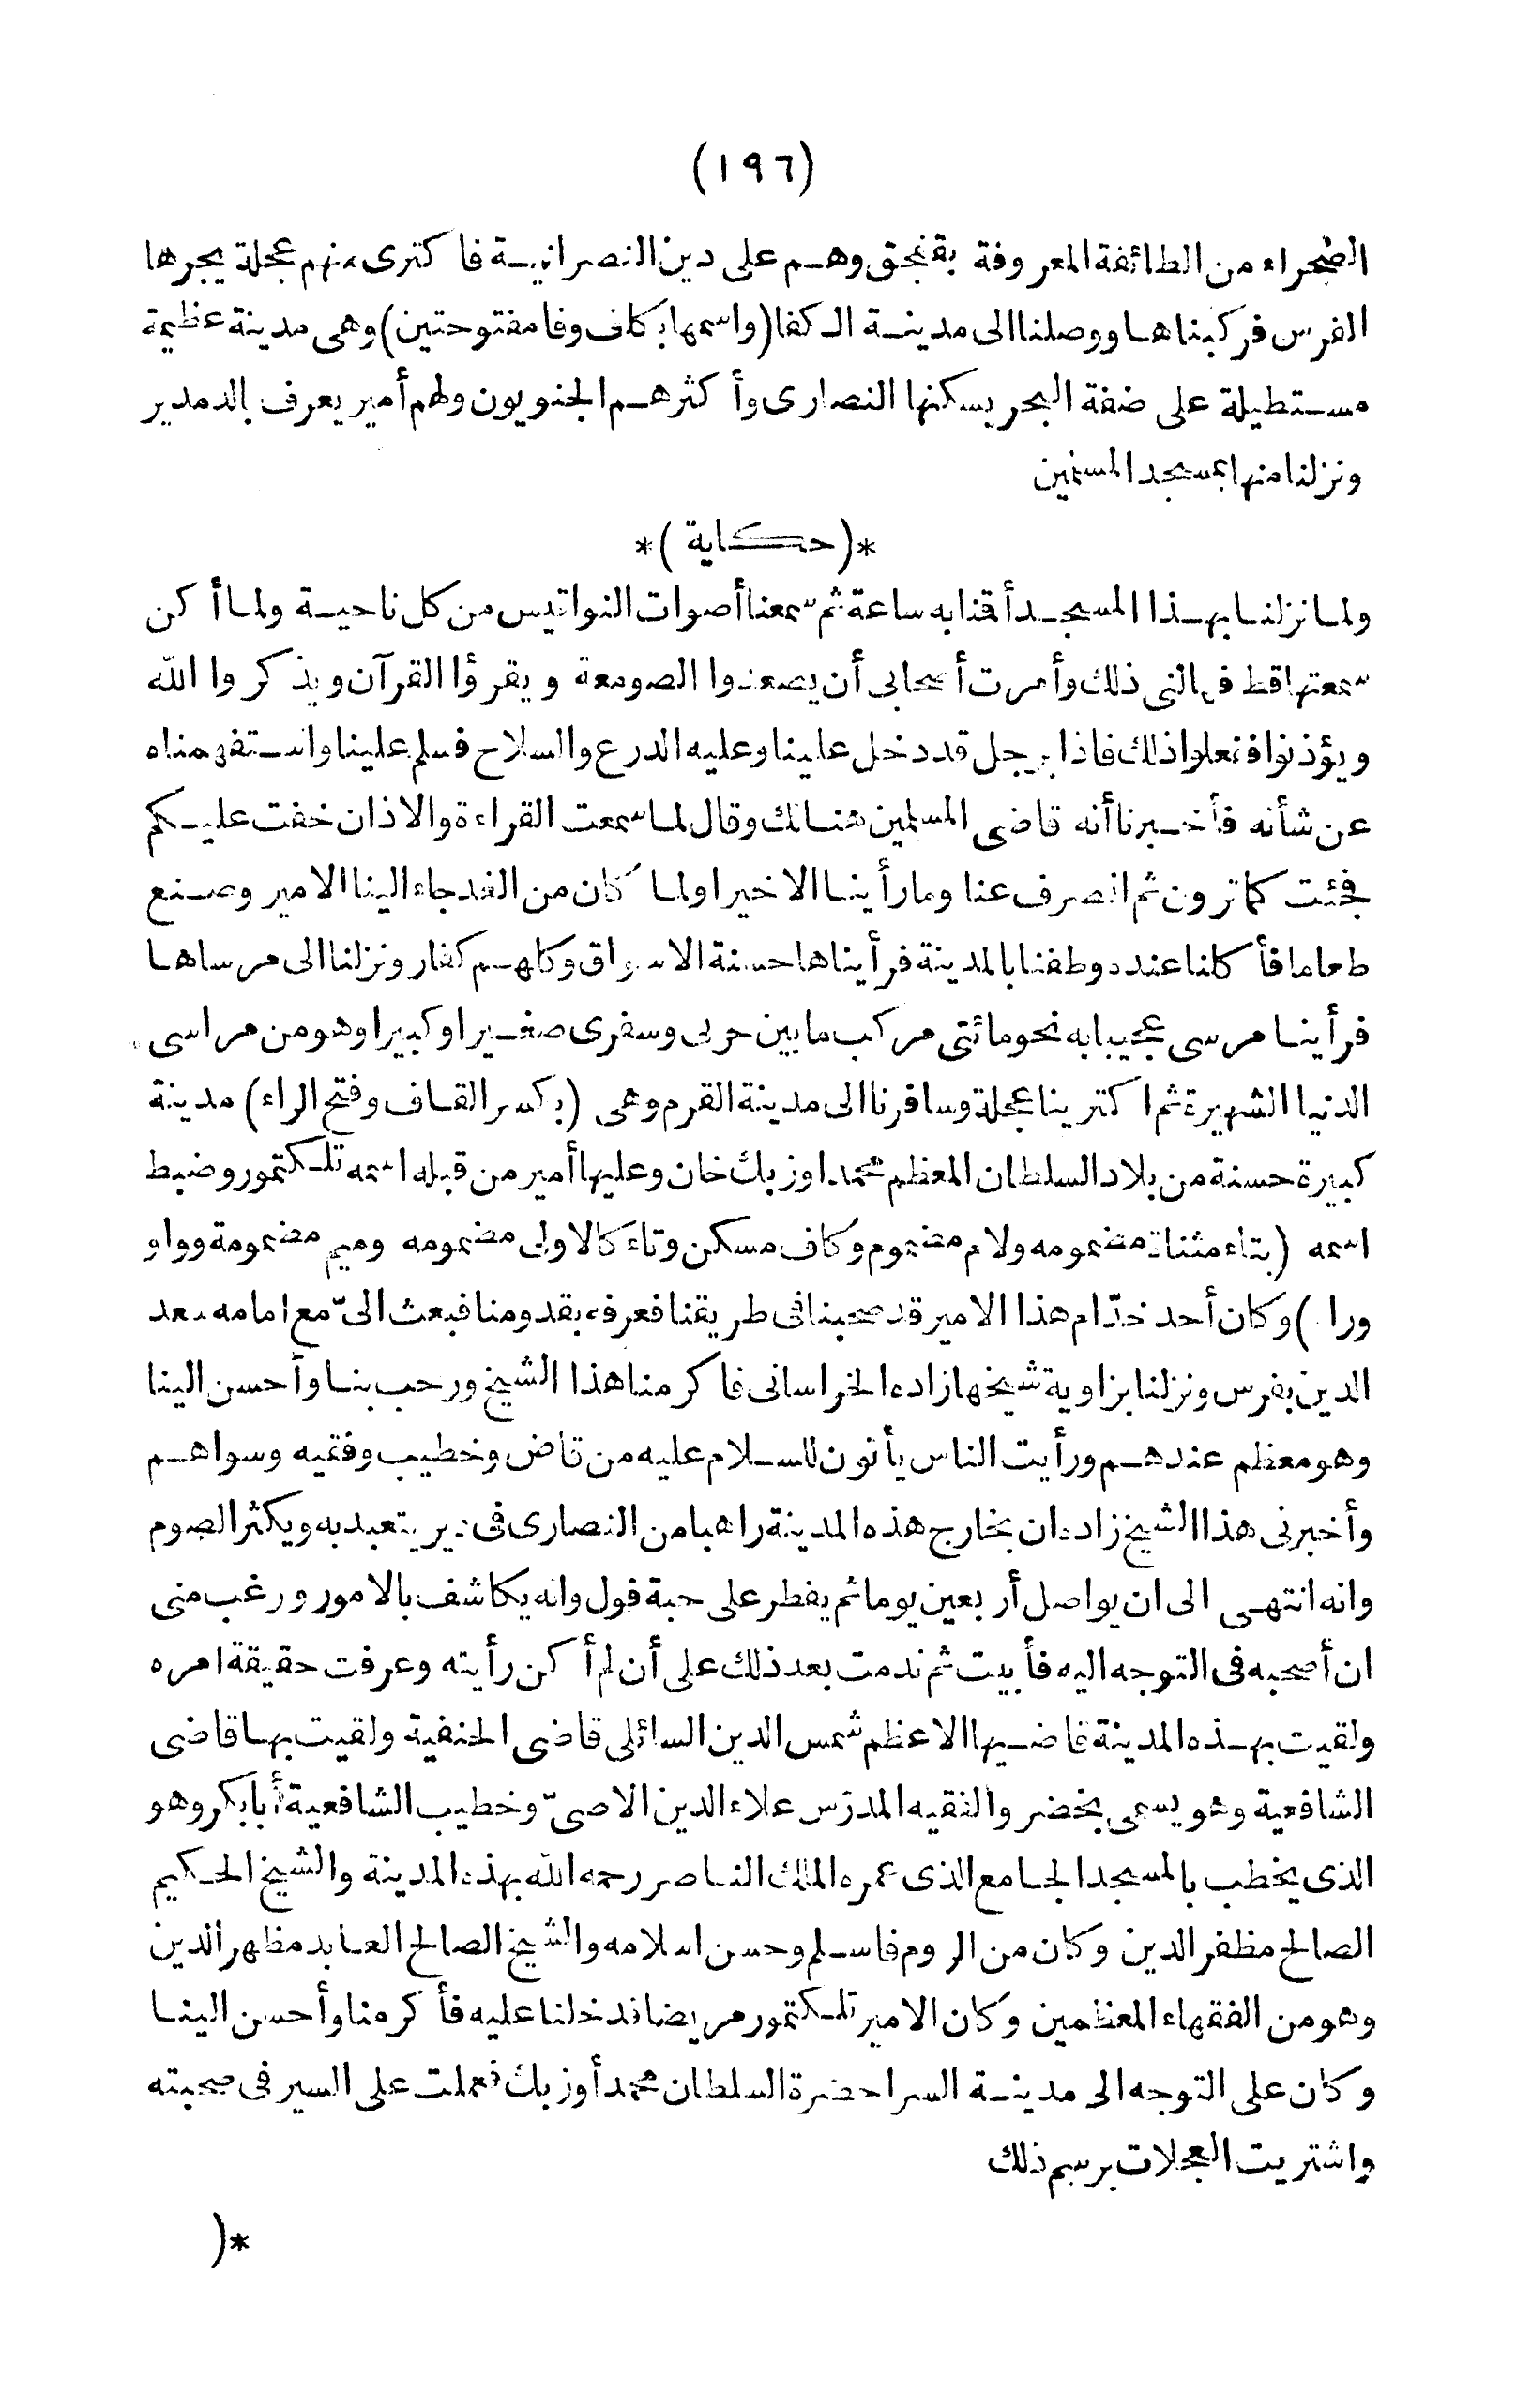 (١٩٦)
الصحراء من الطائفة المعروفة بقفجق وهم على دين النصرانية فاكترى منهم عجلة يجرها
الفرس فركبناها ووصلنا الى مدينة الكفا (واسمها بكاف وفا مفتوحتين) وهى مدينة عظيمة
مستطيلة على ضفة البحر يسكنها النصارى وأكثرهم الجنويون ولهم أمير يعرف بالدمدير
ونزلنا منها بمسجد المسلمين
*(حكاية)*
ولما نزلنا بهذا المسجد أقمنا به ساعة ثم سمعنا أصوات النواقيس من كل ناحية ولما أكن
سمعتها قط فهالنى ذلك وأمرت أصحابى أن يصعدوا الصومعة ويقرؤا القرآن ويذكروا الله
ويؤذنوا ففعلوا ذلك فاذا برجل قد دخل علينا وعليه الدرع والسلاح فسلم علينا واستفهمناه
عن شأنه فأخبرنا أنه قاضى المسلمين هنالك وقال لما سمعت القراءة والاذان خفت عليكم
فجئت كما ترون ثم انصرف عنا وما رأينا الا خيرا ولما كان من الغد جاء الينا الامير وصنع
طعاما فأكلنا عنده وطفنا بالمدينة فرأيناها حسنة الاسواق وكلهم كفار ونزلنا الى مرساها
فرأينا مرسى عجيبا به نحو مائتى مركب ما بين حربى وسفرى صغيرا وكبيرا وهو من مراسى
الدنيا الشهيرة ثم اكترينا عجلة وسافرنا الى مدينة القرم وهى (بكسر القاف وفتح الراء) مدينة
كبيرة حسنة من بلاد السلطان المعظم محمد اوزبك خان وعليها أمير من قبله اسمه تلكتمور وضبط
اسمه (بتاء مثناة مضمومه ولام مضموم وكاف مسكن وتاء كالاولى مضمومه وميم مضمومة وواو
وراء) وكان أحد خدّام هذا الامير قد صحبنا فى طريقنا فعرفه بقدومنا فبعث الىّ مع امامه سعد
الدين بفرس ونزلنا بزاوية شيخها زاده الخراسانى فاكرمنا هذا الشيخ ورحب بنا وأحسن الينا
وهو معظم عندهم ورأيت الناس يأتون للسلام عليه من قاض وخطيب وفقيه وسواهم
وأخبرنى هذا الشيخ زاده ان بخارج هذه المدينة راهبا من النصارى فى دير يتعبد به ويكثر الصوم
وانه انتهى الى ان يواصل أربعين يوما ثم يفطر على حبة فول وانه يكاشف بالامور ورغب منى
ان أصحبه فى التوجه اليه فأبيت ثم ندمت بعد ذلك على أن لم أكن رأيته وعرفت حقيقة امره
ولقيت بهذه المدينة قاضيها الاعظم شمس الدين السائلى قاضى الحنفية ولقيت بها قاضى
الشافعية وهو يسمى بخضر والفقيه المدرّس علاء الدين الاصىّ وخطيب الشافعية أبا بكر وهو
الذى يخطب بالمسجد الجامع الذى عمره الملك الناصر رحمه الله بهذه المدينة والشيخ الحكيم
الصالح مظفر الدين وكان من الروم فاسلم وحسن اسلامه والشيخ الصالح العابد مظهر الدين
وهو من الفقهاء المعظمين وكان الامير تلكتمور مريضا فدخلنا عليه فأكرمنا وأحسن الينا
وكان على التوجه الى مدينة السرا حضرة السلطان محمد أوزبك فعملت على السير فى صحبته
واشتريت العجلات برسم ذلك
*(